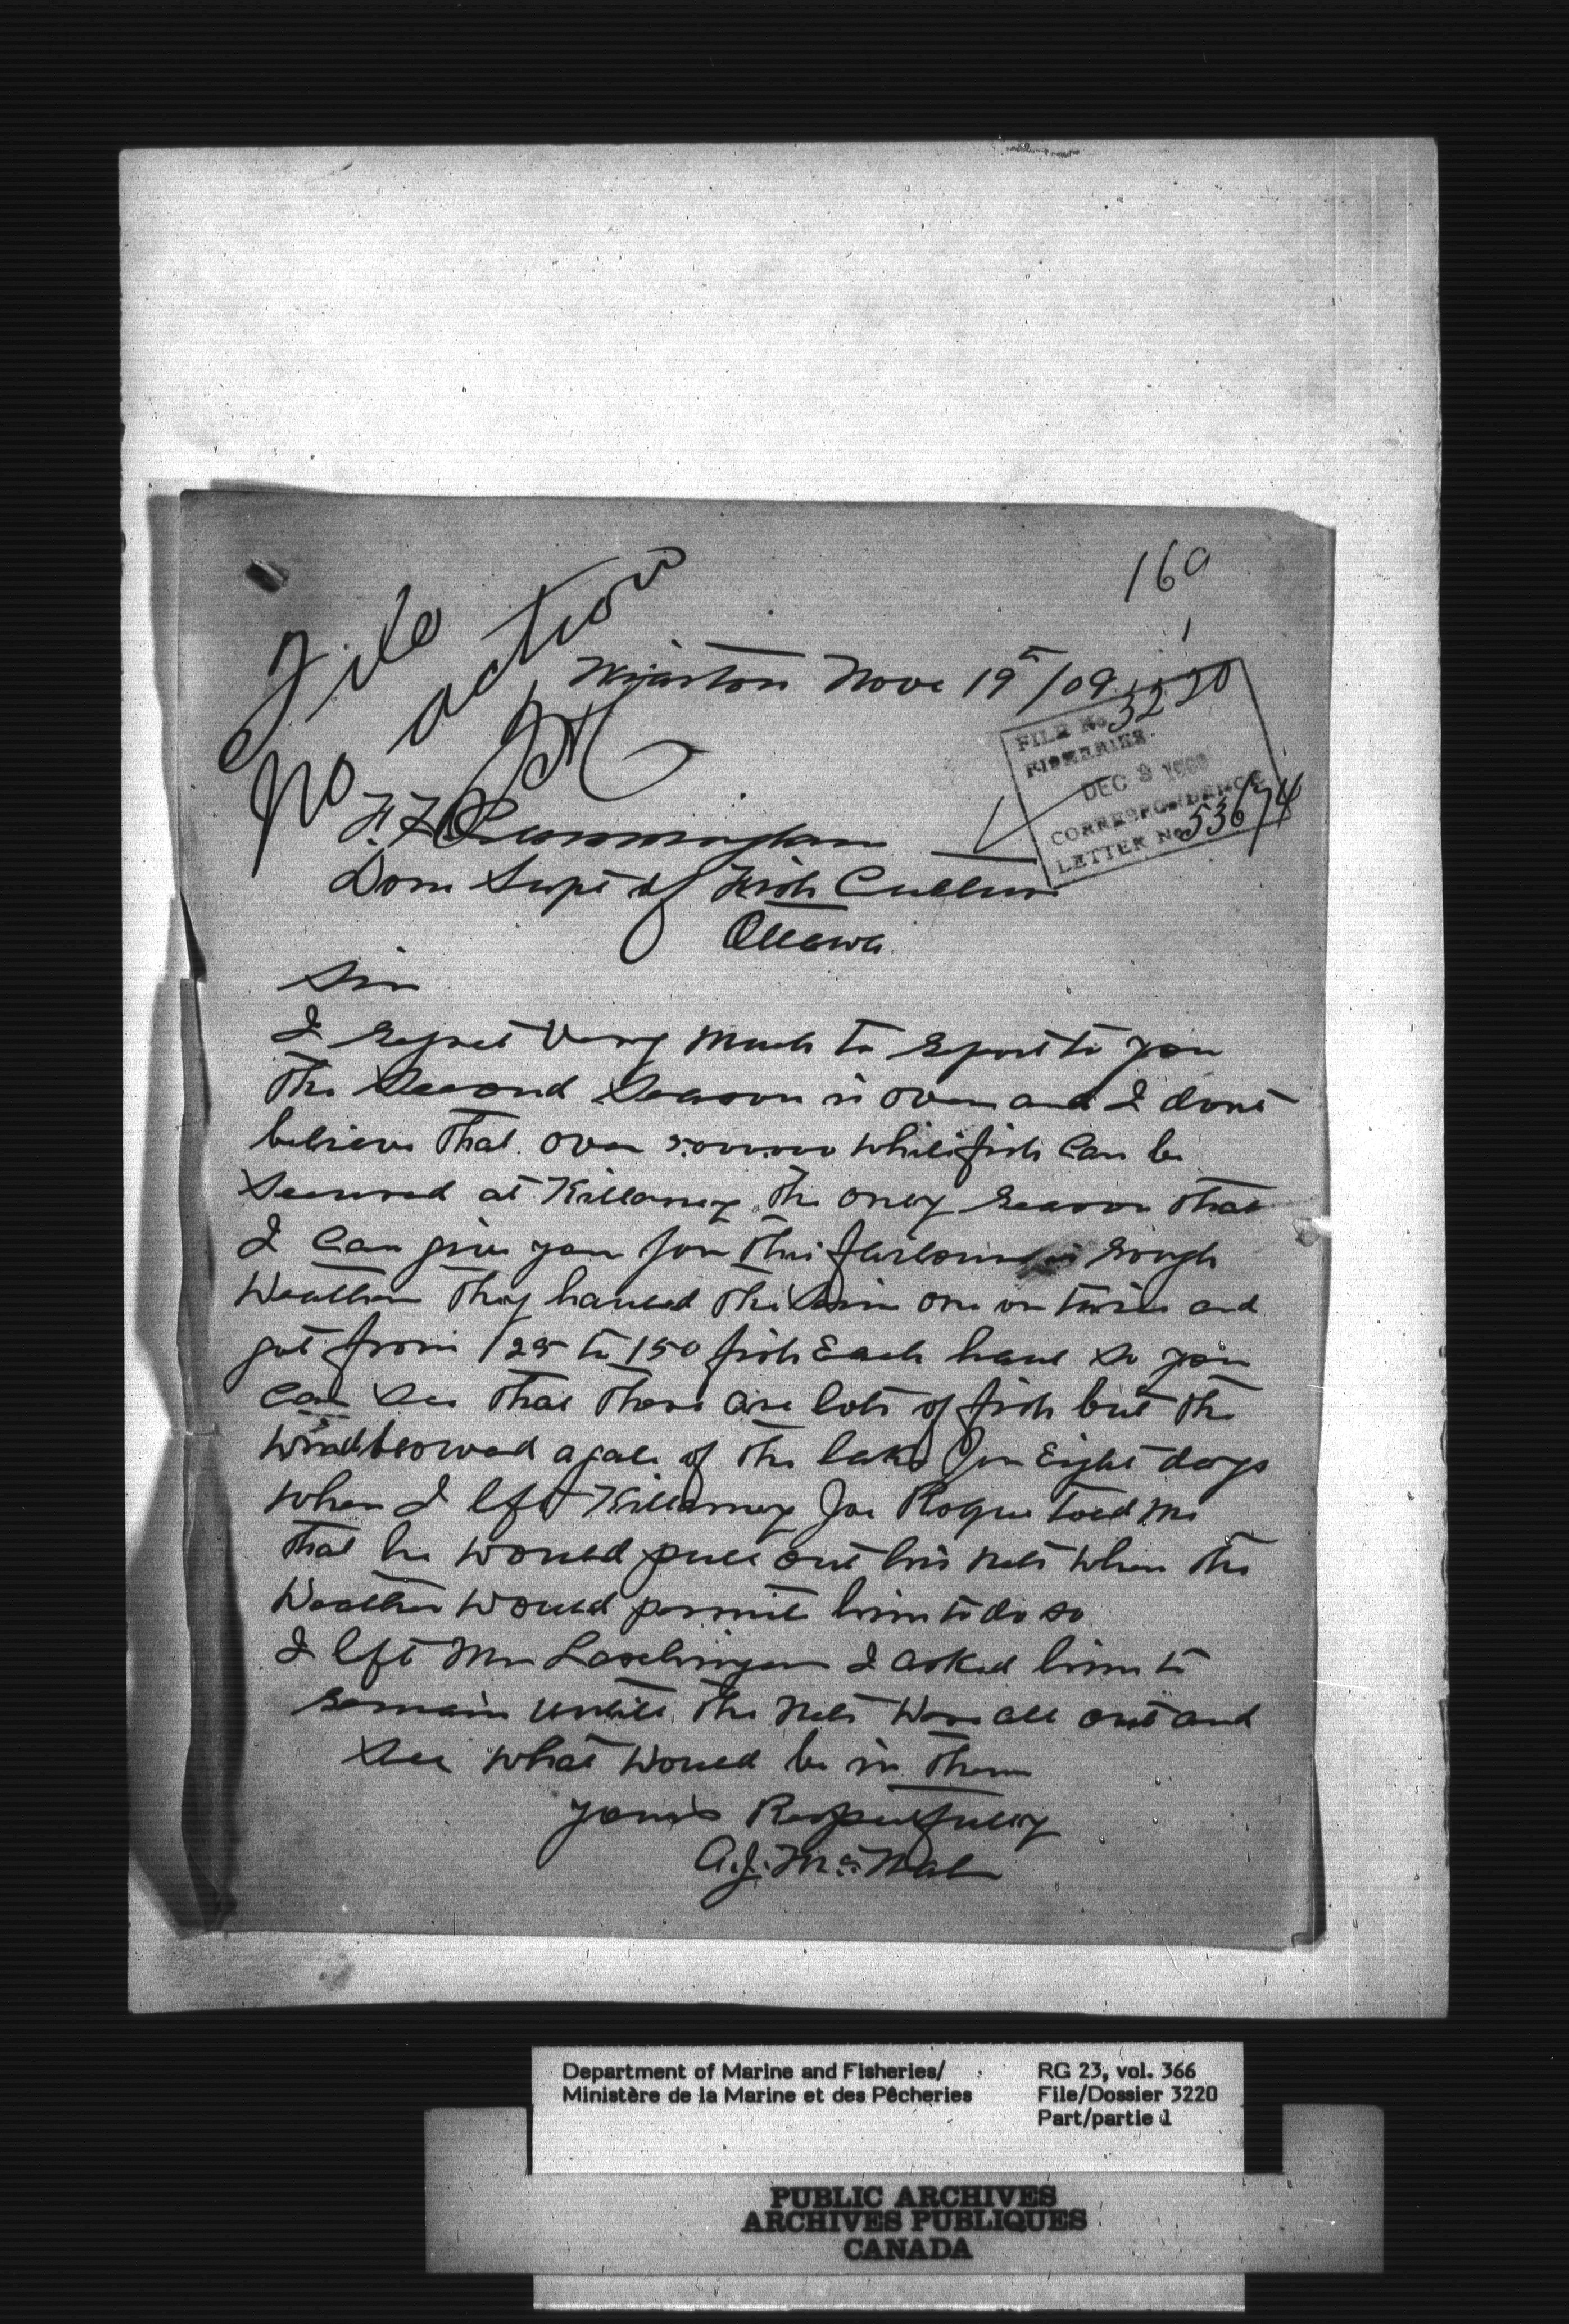 160
File
no action
Wiarton Nove 19th/09
FILE No. 3220
FISHERIES
DEC 3 1909
CORRESPONDENCE
LETTER No. 53674
F. H. Cunningham
Dom Supt of Fish Culture
Ottawa
Sir
I regret Very Much to report to you
The Second Season is over and I dont
believe that over 5.000.000 whitefish Can be
Secured at Killarney The only reason that
I Can give you for This is rough
Weather They hauled The Seine one or twice and
got from 125 to 150 fish Each haul so you
Can See That There are lots of fish but The
Wind blowed a gale of The lake for Eight days
When I left Killarney Joe Roque told Me
That he would pull out his nets when The
Weather would permit him to do so
I left Mr I asked him to
remain untill The Nets Were all out and
See what would be in Them
yours Respectfully
A.J. McNab
Department of Marine and Fisheries/
Ministère de la Marine et des Pêcheries
RG 23, vol. 366
File/Dossier 3220
Part/partie 1
PUBLIC ARCHIVES
ARCHIVES PUBLIQUES
CANADA